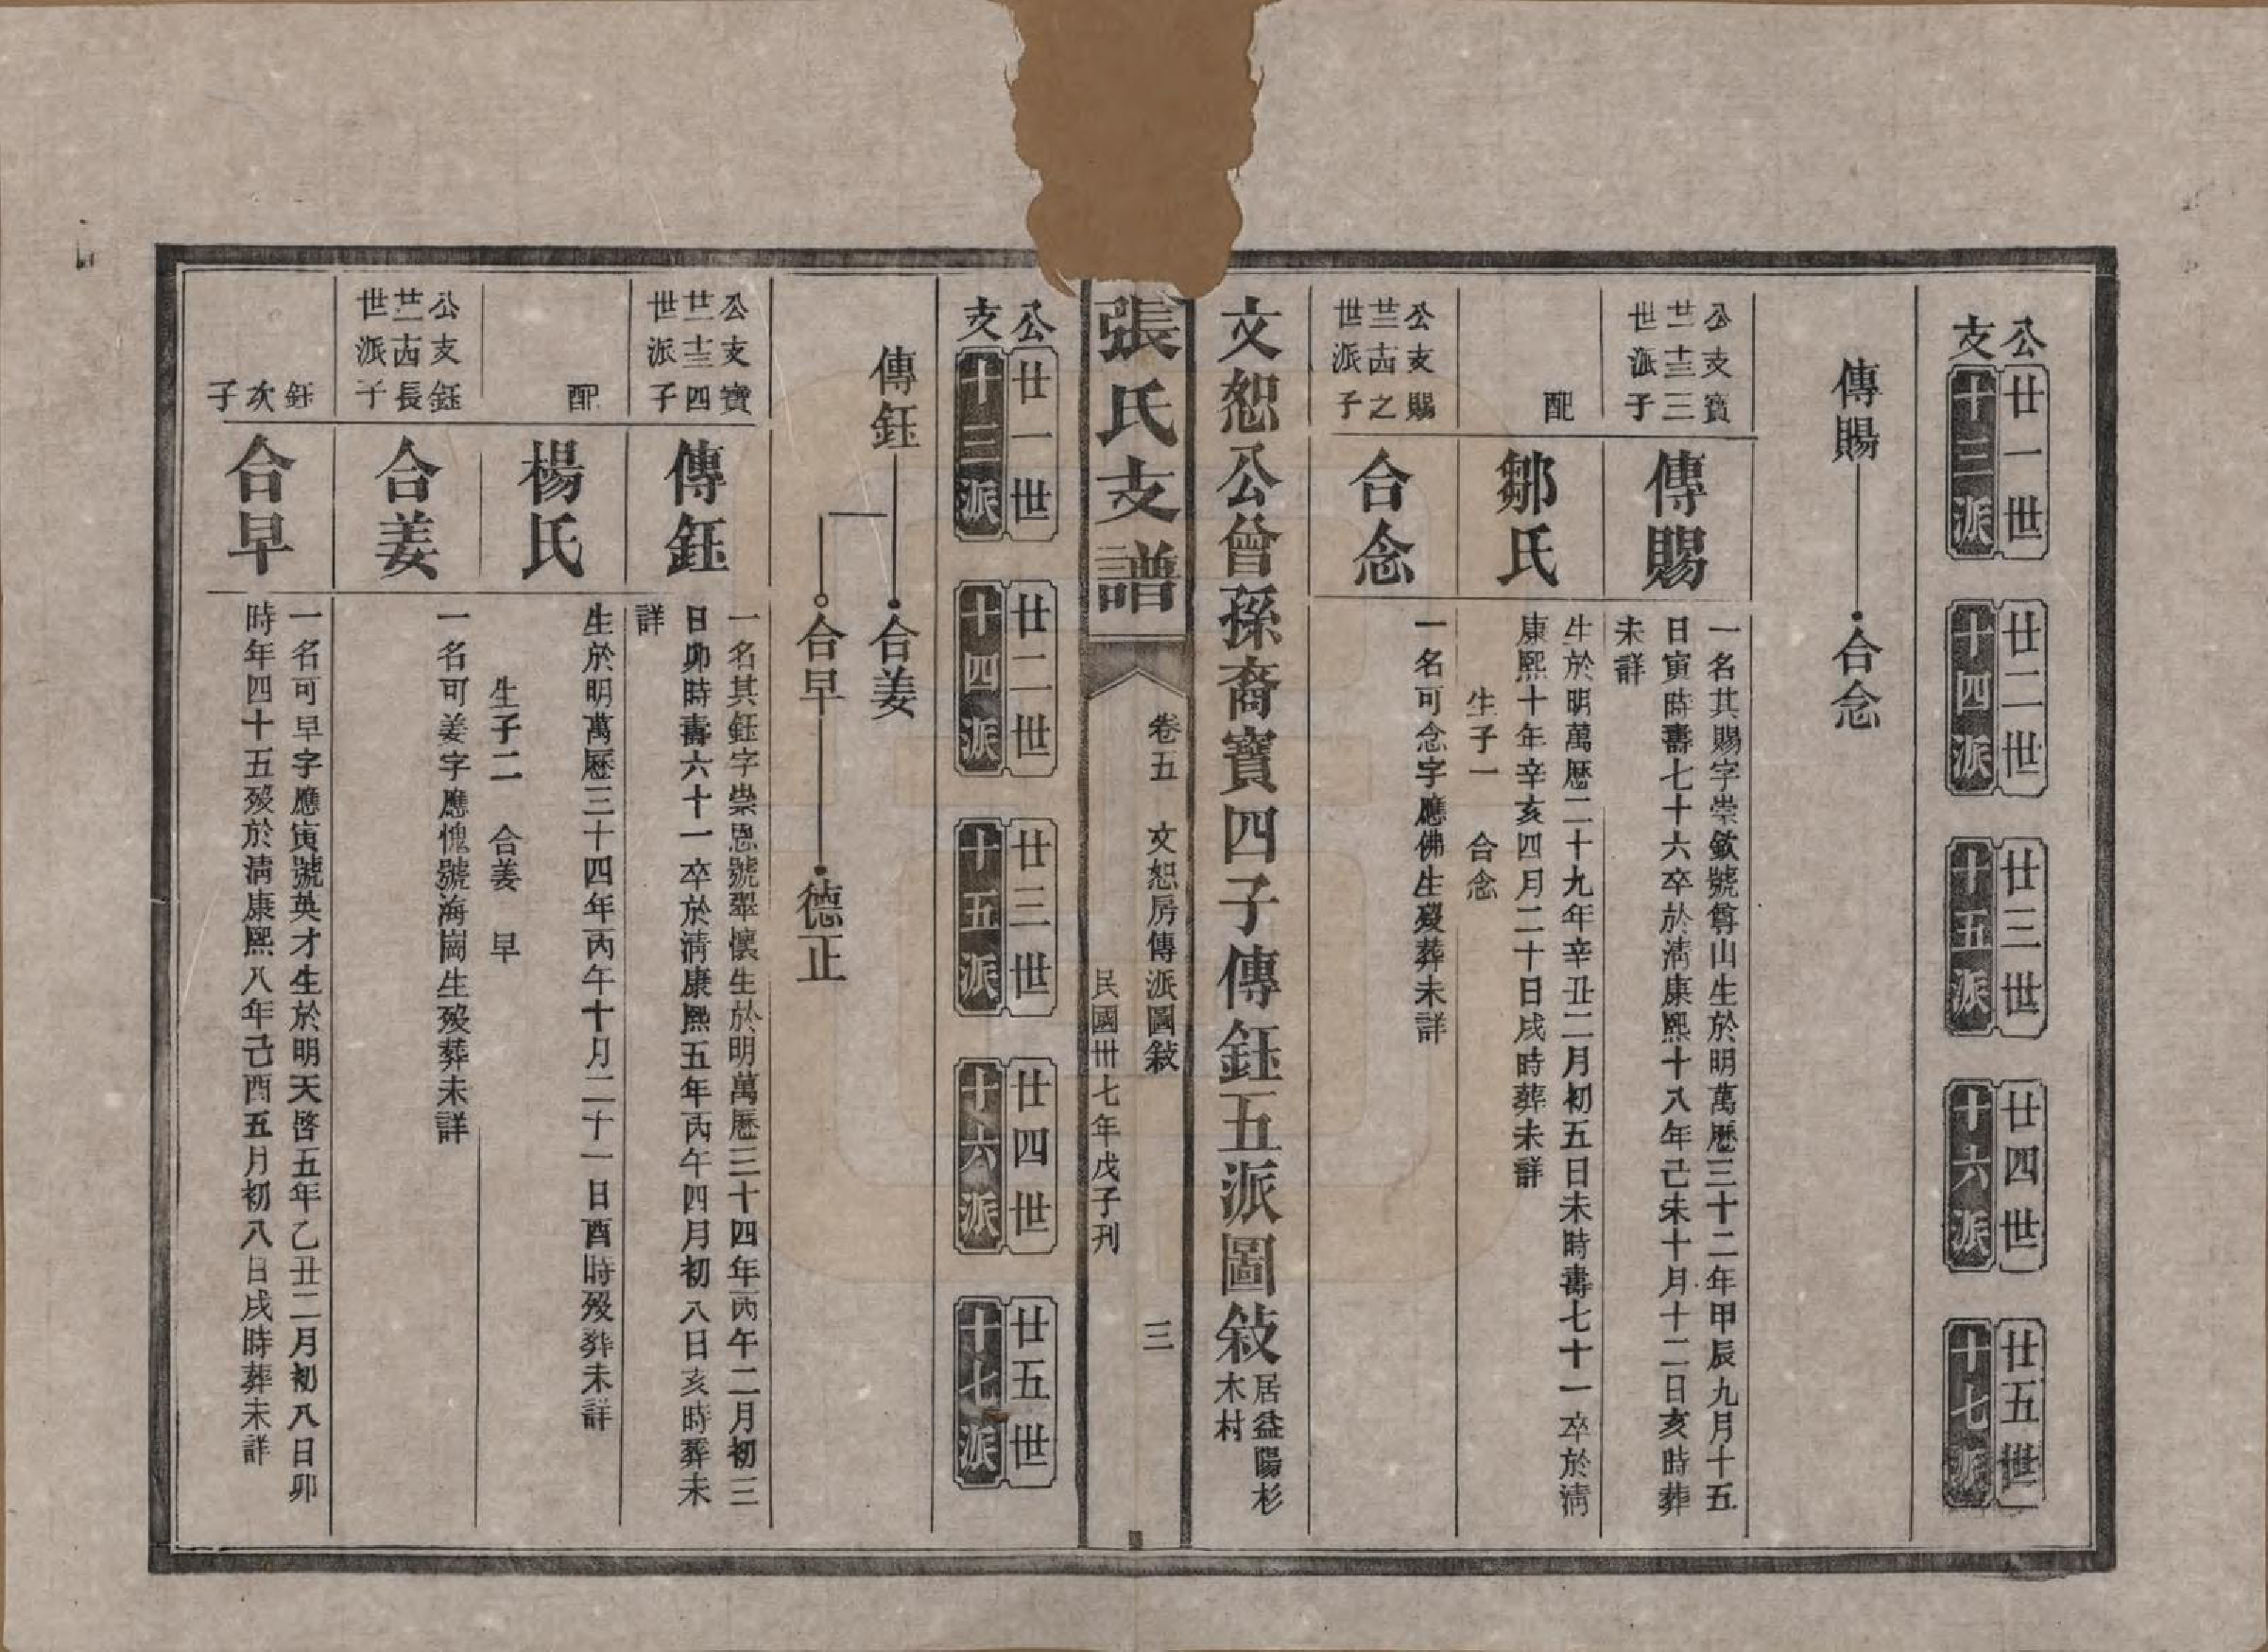 公支
廿一世 十三派
廿二世 十四派
廿三世 十五派
廿四世 十六派
廿五世 十七派
傳賜 合念
公支寶
廿二十三三
世派子
傳賜
一名其賜字崇欽號尊山生於明萬曆三十二年甲辰九月十五
日寅時壽七十六卒於淸康熙十八年己未十月十二日亥時葬
未詳
配
鄒氏
生於明萬曆二十九年辛丑二月初五日未時壽七十一卒於淸
康熙十年辛亥四月二十日戌時葬未詳
生子一 合念
公支賜
廿二十四之
世派子
合念
一名可念字應佛生歿葬未詳
文恕公曾孫裔寶四子傳鈺五派圖敍
居益陽杉
木村
張氏支譜
卷五 文恕房傳派圖敍 三
民國卅七年戊子刋
公支
廿一世 十三派
廿二世 十四派
廿三世 十五派
廿四世 十六派
廿五世 十七派
傳鈺 合姜
合早 德正
公支寶
廿一十三四
世派子
傳鈺
一名其鈺字崇恩號翠懷生於明萬曆三十四年丙午二月初三
日卯時壽六十一卒於淸康熙五年丙午四月初八日亥時葬未
詳
配
楊氏
生於明萬曆三十四年丙午十月二十一日酉時歿葬未詳
生子二 合姜 早
公支鈺
廿二十四長
世派子
合姜
一名可姜字應愧號海崗生歿葬未詳
鈺
次
子
合早
一名可早字應寅號英才生於明天啓五年乙丑二月初八日卯
時年四十五歿於淸康熙八年己酉五月初八日戌時葬未詳